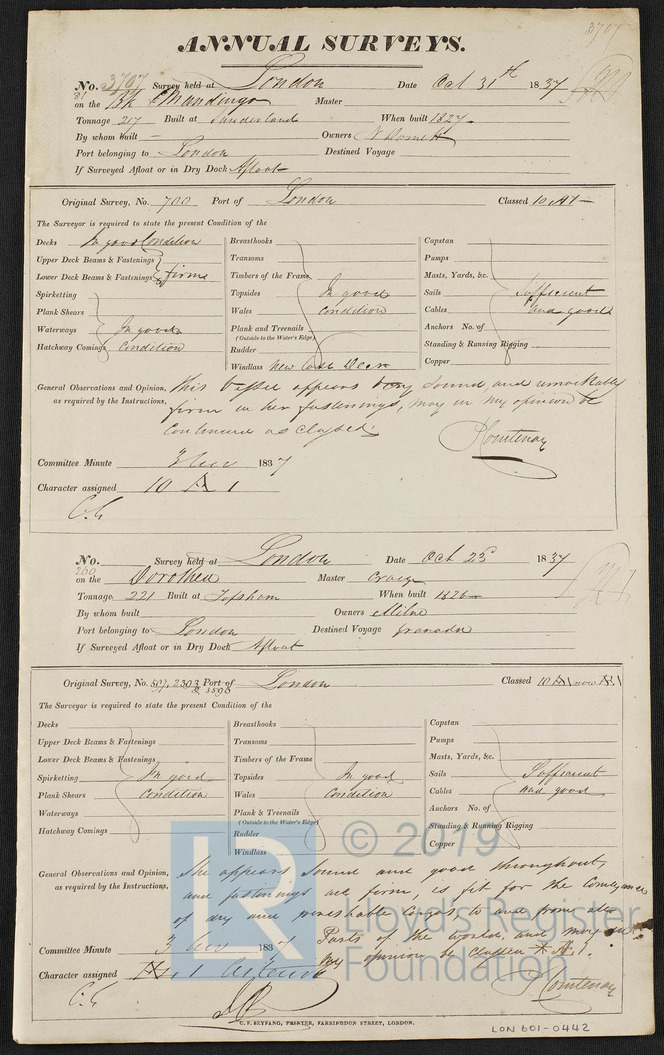 3707
ANNUAL SURVEYS.
No. 3707 Survey held at London Date Oct 31st 1837
81 on the Bk Mandingo Master
Tonnage 217 Built at Sunderland When built 1827
By whom built Owners
Port belonging to London Destined Voyage
If Surveyed Afloat or in Dry Dock Afloat
Original Survey, No. 700 Port of London Classed 10 A1
The Surveyor is required to state the present Condition of the
Decks In good Condition
Upper Deck Beams & Fastenings
Lower Deck Beams & Fastenings firm
Spirketting
Plank Shears
Waterways In good
Hatchway Comings Condition
Breasthooks
Transoms
Timbers of the Frame
Topsides In good
Wales Condition
Plank and Treenails
(Outside to the Water's Edge)
Rudder
Windlass New
Capstan
Pumps
Masts, Yards, &c.
Sails Sufficient
Cables and good
Anchors No. of
Standing & Running Rigging
Copper
General Observations and Opinion, This Vessel appears very sound and remarkably
as required by the Instructions, firm in her fastenings, may in my opinion be
Continued as classed.
P Courtenay
Committee Minute 3 Nov 1837
Character assigned 10 A 1
C.G
No. Survey held at London Date Oct 25 1837
260 on the Dorothea Master Craig
Tonnage 221 Built at Topsham When built 1826
By whom built Owners Milne
Port belonging to London Destined Voyage Granada
If Surveyed Afloat or in Dry Dock Afloat
Original Survey, No. 507, 2303 Port of London Classed 10 A1 now Æ1
& 3596
The Surveyor is required to state the present Condition of the
Decks
Upper Deck Beams & Fastenings
Lower Deck Beams & Fastenings
Spirketting In good
Plank Shears Condition
Waterways
Hatchway Comings
Breasthooks
Transoms
Timbers of the Frame
Topsides In good
Wales Condition
Plank & Treenails
(Outside to the Water's Edge)
Rudder
Windlass
Capstan
Pumps
Masts, Yards, &c.
Sails Sufficient
Cables and good
Anchors No. of
Standing & Running Rigging
Copper
General Observations and Opinion, She appears sound and good throughout,
as required by the Instructions, and fastenings all firm, is fit for the Conveyance
of dry and perishable Cargos, to and from all
Parts of the world, and may in
my opinion be Classed Æ 1.
Committee Minute 3 Nov 1837
Character assigned Æ 1
C.G
P Courtenay
C. F. SEYFANG, PRINTER, FARRINGDON STREET, LONDON.
LON 601-0442
LR © 2019
Lloyd's Register
Foundation